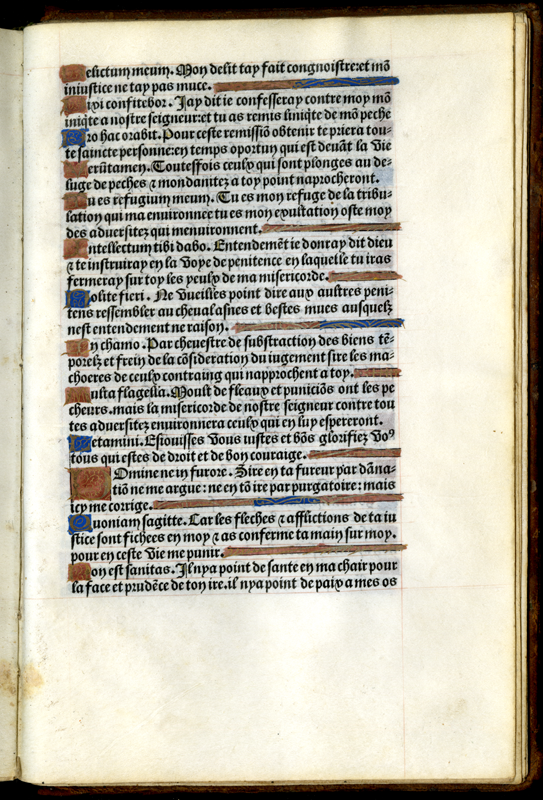 Delictum meum. Mon delit tay fait congnoistre:et mõ
iniustice ne tay pas muce.
Dixi confitebor. Jay dit ie confesseray contre moy mõ
iniq̃te a nostre seigneur:et tu as remis liniq̃te de mõ peche
Pro hac orabit. Pour ceste remissiõ obtenir te priera tou-
te saincte personne:en temps oportun qui est deuãt la vie
Verũtamen. Touteffois ceulx qui sont plonges au de-
luge de peches ⁊ mondanitez a toy point naprocheront.
Tu es refugium meum. Tu es mon refuge de la tribu-
lation qui ma enuironnee tu es mon exultation oste moy
des aduersitez qui menuironnent.
Intellectum tibi dabo. Entendemẽt ie donray dit dieu
⁊ te instruiray en la voye de penitence en laquelle tu iras
fermeray sur toy les yeulx de ma misericorde.
Nolite fieri. Ne vueilles point dire aux aultres peni-
tens ressembler au cheual asnes et bestes mues ausquelz
nest entendement ne raison.
In chamo. Par cheuestre de substraction des biens tẽ-
porelz et frein de la cõsideration du iugement sire les ma-
choeres de ceulx contraing qui napprochent a toy.
Multa flagella. Moult de fleaux et puniciõs ont les pe
cheurs. mais la misericorde de nostre seigneur contre tou
tes aduersitez enuironnera ceulx qui en luy espereront.
Letamini. Esiouisses vous iustes et bõs glorifiez voꝰ
tous qui estes de droit et de bon couraige.
Domine ne in furore. Sire en ta fureur par dãna-
tiõ ne me argue: ne en tõ ire par purgatoire: mais
icy me corrige.
Quoniam sagitte. Car les fleches ⁊ afflictions de ta iu
stice sont fichees en moy ⁊ as conferme ta main sur moy.
pour en ceste vie me punir.
Non est sanitas. Il nya point de sante en ma chair pour
la face et prudẽce de ton ire. il nya point de paix a mes os